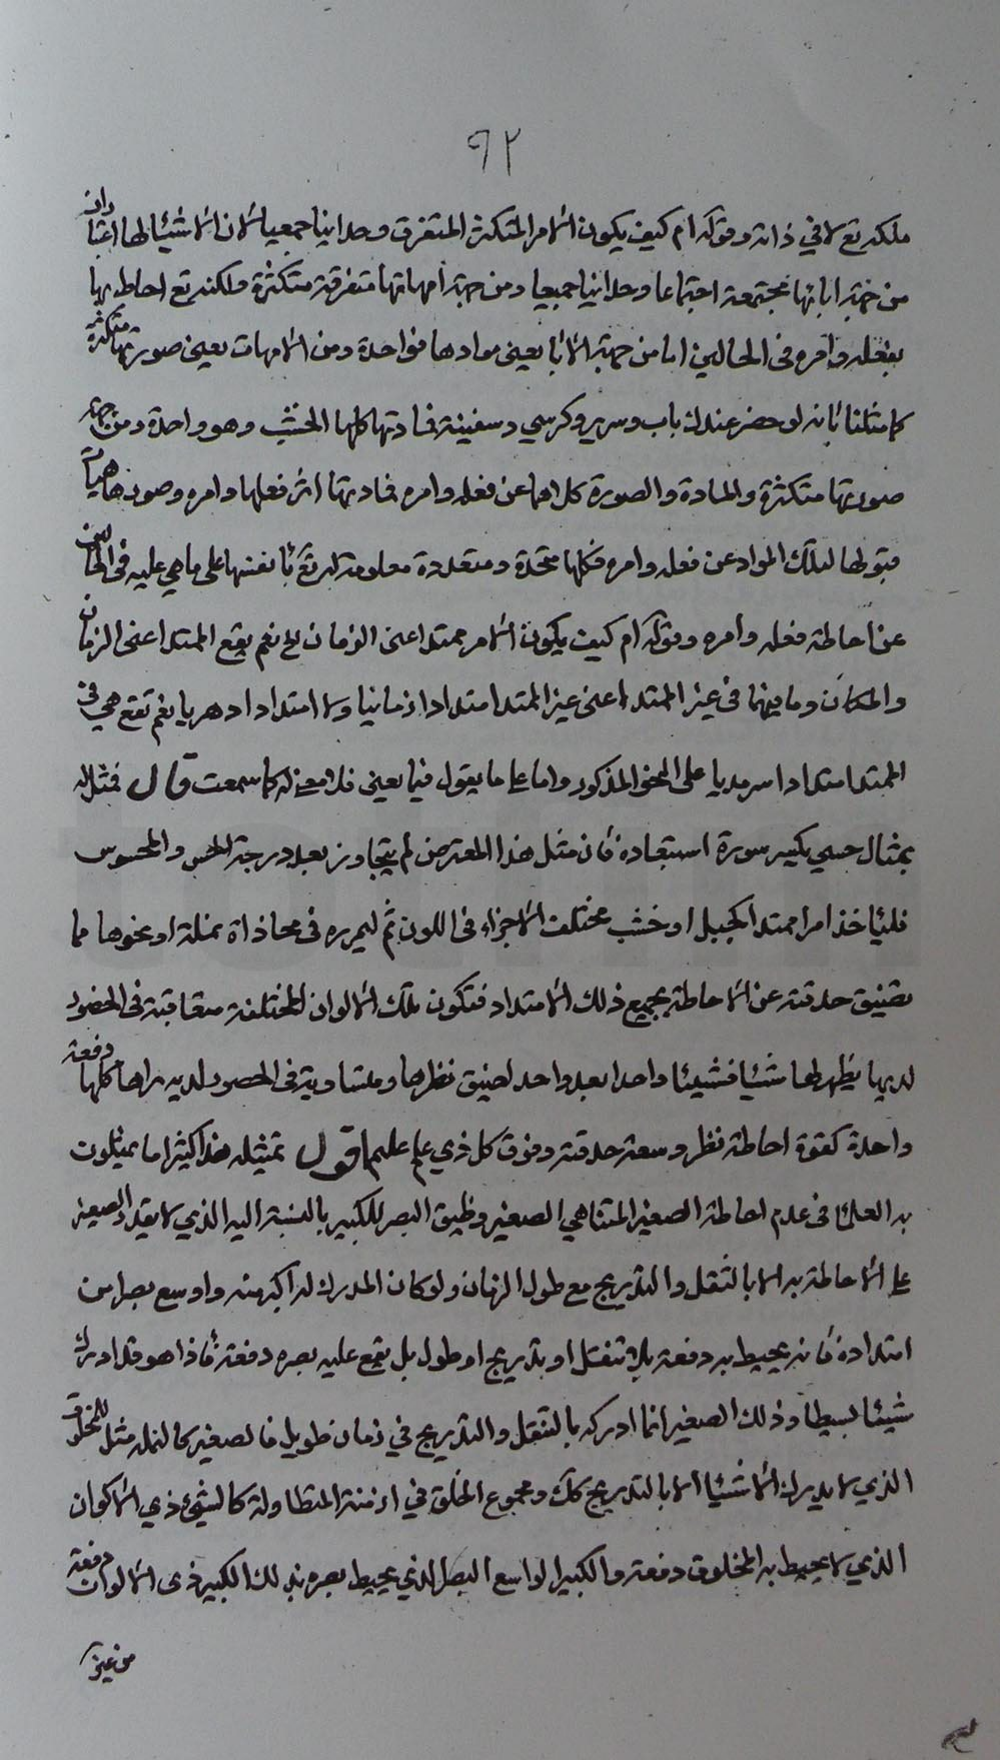 ٩٢
ملكه تع لا في ذاته وقوله ام كيف يكون الامر المتكثر المتفرق وحدانيا جمعيا لان الاشياء لها اعتباران
من جهة ابائها مجتمعة اجتماعا وحدانيا جمعيا ومن جهة امهاتها متفرقة متكثرة ولكنه تع احاط بها
بفعله وامره في الحالين اما من جهة الابا يعني موادها فواحدة ومن الامهات يعني صورتها متكثرة
كما مثلنا بانه لو حضر عندك باب وسرير وكرسي وسفينة فمادتها كلها الخشب وهو واحدة ومن جهة
صورتها متكثرة والمادة والصورة كلاهما عن فعله وامره فمادتها اثر فعلها وامره وصورها هيات
قبولها لتلك المواد عن فعله وامره فكلها متحدة ومتعددة معلومة له تع بانفسها على ما هي عليه في الحالين
عن احاطة فعله وامره وقوله ام كيف يكون الامر ممتدا عنى الزمان الخ نعم يقع الممتد اعنى الزمان
والمكان وما فيهما في غير الممتد اعنى غير الممتد امتدادا زمانيا ولا امتدادا دهريا نعم تقع هي في
الممتد امتدادا سرمديا على النحو المذكور واما على ما يقول فيما يعني فلا معنى له كما سمعت قال فمثل له
بمثال حسي يكسر سورة استبعاده فان مثل هذا المعترض لم يتجاوز بعد درجة الحس والمحسوس
فليأخذ امرا ممتدا كحبل او خشب مختلف الاجزاء في اللون ثم ليمرره في محاذاة نملة او نحوها مما
تضيق حدقته عن الاحاطة بجميع ذلك الامتداد فتكون تلك الالوان المختلفة متعاقبة في الحضور
لديها يظهر لها شيئا فشيئا واحدا بعد واحد لضيق نظرها ومتساوية في الحضور لديه يراها كلها دفعة
واحدة كقوة احاطة نظر وسعة حدقته وفوق كل ذي علم عليم اقول تمثيله هذا كثيرا ما يمثلون
به العلما في عدم احاطة الصغير المتناهي الصغير وضيق البصر للكبير بالنسبة اليه الذي لا يقدر الصغير
على الاحاطة به الا بالتنقل والتدريج مع طول الزمان ولو كان المدرك له اكبر منه واوسع بصرا من
امتداده فانه يحيط به دفعة بلا تنقل او تدريج او طول بل يقع عليه بصره دفعة فاذا هو قد ادرك
شيئا بسيطا وذلك الصغير انما ادركه بالتنقل والتدريج في زمان طويل فالصغير كالنملة مثل للمخلوق
الذي لا يدرك الاشيئا الا بالتدريج كك ومجموع الخلق في ازمنة المتطاولة كالشئ ذي الاكوان
الذي لا يحيط به المخلوق دفعة والكبير الواسع البصر الذي يحيط بصره بذلك الكبير ذى الالوان دفعة
من غير